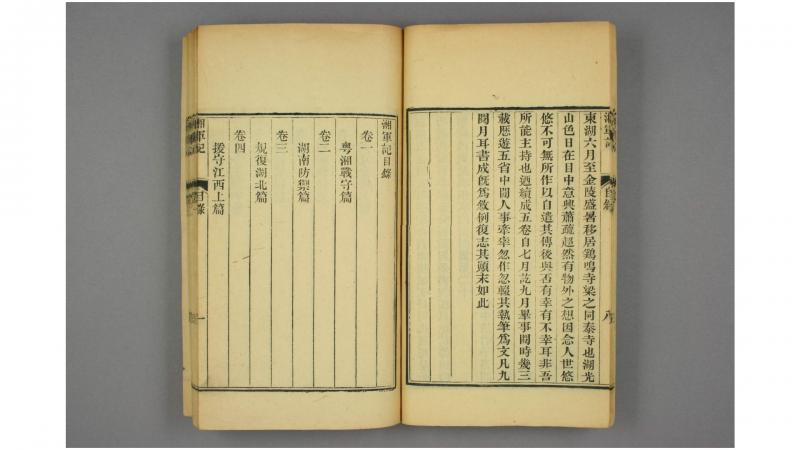 湘軍記
東湖六月至金陵盛暑移居鷄鳴寺梁之同泰寺也湖光
山色日在目中意興蕭疏超然有物外之想因念人世悠
悠不可無所作以自遣其傳後與否有幸有不幸耳非吾
所能主持也迺續成五卷自七月訖九月畢事閱時幾三
載歷遊五省中間人事牽率忽作忽輟其執筆爲文凡九
閱月耳書成旣爲敘例復志其顚末如此
湘軍記目錄
卷一
粵湘戰守篇
卷二
湖南防禦篇
卷三
規復湖北篇
卷四
援守江西上篇
湘軍記
目錄
一